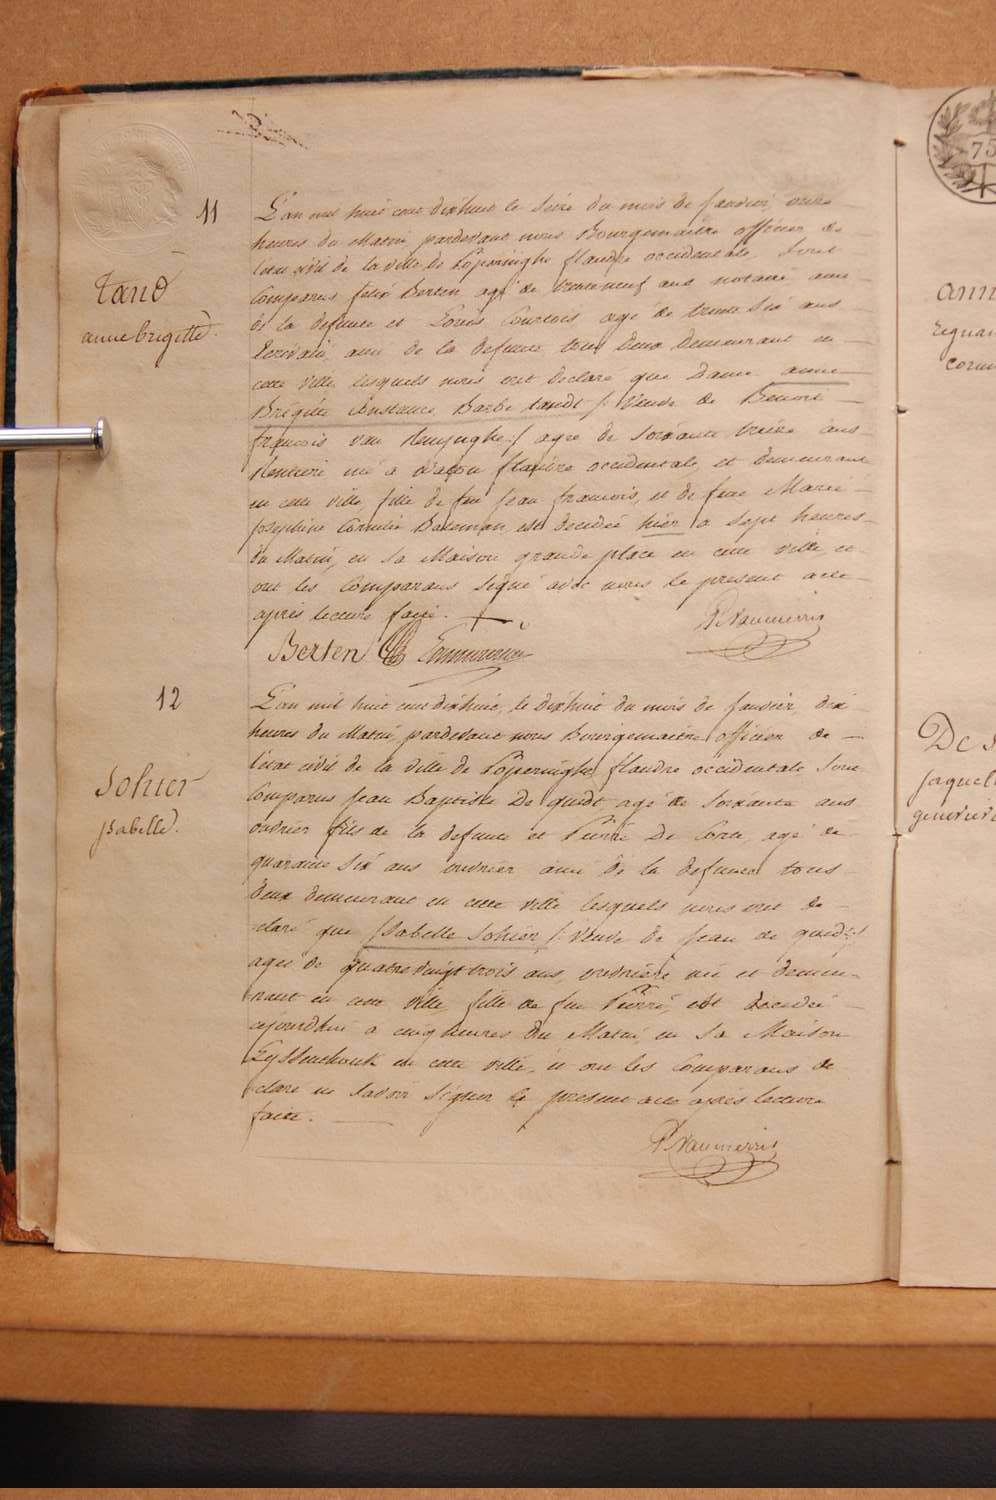 11
Tand
anne brigitte.
L'an mil huit cent dixhuit le Seize du mois de Janvier, onze
heures du Matin pardevant nous Bourgemaitre officier de
l'etat civil de la ville de Poperinghe flandre occidentale, Sont
Comparus felix Berten agé de trenteneuf ans notaire ami
de la defunte et Louis Courtois agé de trente Six ans
Ecrivain, ami de la defunte tous deux demeurant en
cette ville, lesquels nous ont declaré que Dame anne
Brigitte Constance Barbe tandt /: Veuve de Benoit
francois van :/ agée de Soixante treize ans
Rentiere né a flandre occidentale, et demeurant
en cette ville fille de feu Jean francois, et de feue Marie
Josephine Cornelie Bateman, est decedée hier a Sept heures
du Matin, en Sa Maison grande place en cette ville, et
ont les Comparans Signé avec nous le present acte
après lecture faite.
Berten
PVanmerris
12
Sohier
isabelle.
L'an mil huit cent dixhuit, le dixhuit du mois de Janvier, dix
heures du Matin, pardevant nous Bourgemaitre officier de
l'etat civil de la ville de Poperinghe, flandre occidentale Sont
Comparus Jean Baptiste De quidt agé de Soixante ans
ouvrier fils de la defunte et Pierre De Corte, agé de
quarante Six ans ouvrier ami de la defunte tous
deux demeurant en cette ville lesquels nous ont de
claré que Isabelle Sohier /: Veuve de Jean de quidt :/
agée de quatrevingt trois ans, ouvriere née et demeu-
rant en cette ville, fille de feu Pierre, est decedée
cejourdhui a cinq heures du Matin, en Sa Maison
en cette ville, et ont les Comparans de
claré ne Savoir Signer le present acte après lecture
faite.
PVanmerris
75